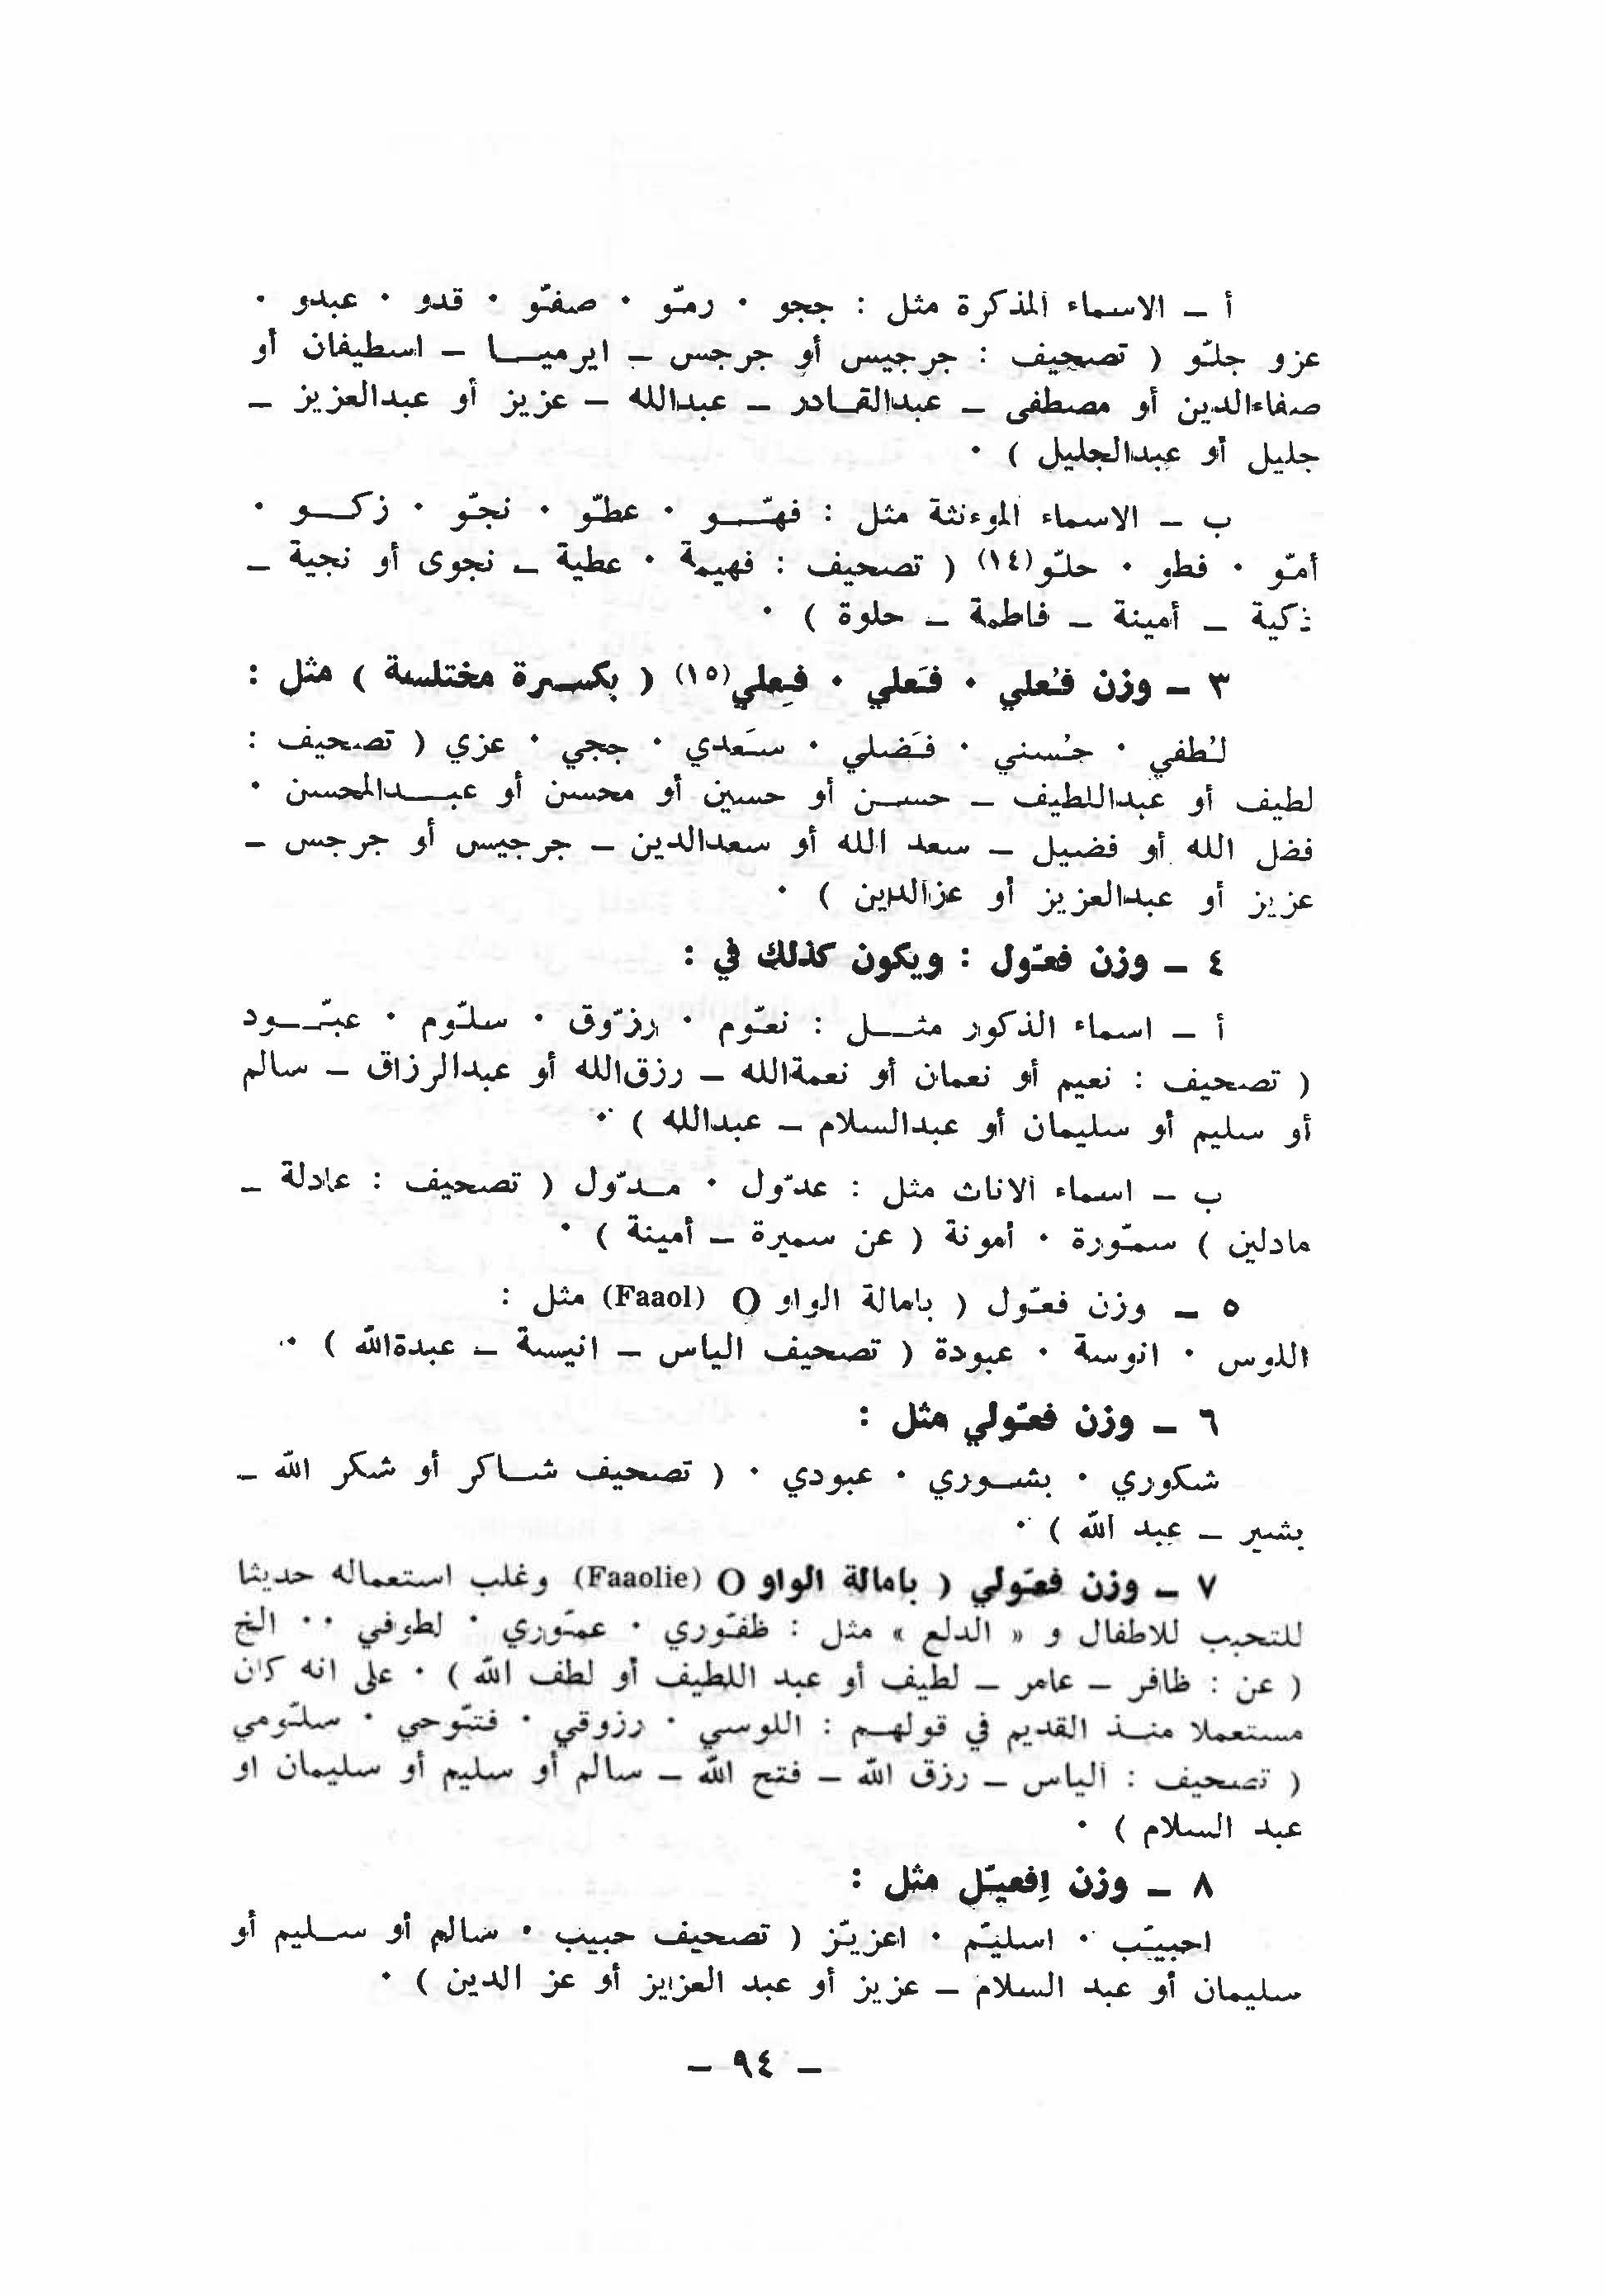 أ – الاسماء المذكرة مثل : ججو ٠ رمّو ٠ صفّو ٠ قدو ٠ عبدو ٠
عزو جلّو ( تصحيف : جرجيس أو جرجس – ايرميــا – اسطيفان أو
صفاءالدين أو مصطفى – عبدالقـادر – عبدالله – عزيز أو عبدالعزيز –
جليل أو عبدالجليل ) ٠
ب – الاسماء الموءنثة مثل : فهّــو ٠ عطّو ٠ نجّو ٠ زكــو ٠
أمّو ٠ فطو ٠ حلّو(١٤) ( تصحيف : فهيمة ٠ عطية – نجوى أو نجية –
ذكية – أمينة – فاطمة – حلوة ) ٠
٣ – وزن فُعلي ٠ فَعلي ٠ فِعلي(١٥) ( بكسـرة مختلسة ) مثل :
لُطفي ٠ حُسني ٠ فَضلي ٠ سَعدي ٠ ججي ٠ عزي ( تصحيف :
لطيف أو عبداللطيف – حسـن أو حسين أو محسن أو عبــدالمحسن ٠
فضل الله أو فضيل – سعد الله أو سعدالدين – جرجيس أو جرجس –
عزيز أو عبدالعزيز أو عزالدين ) ٠
٤ – وزن فعّول : ويكون كذلك في :
أ – اسماء الذكور مثــل : نعّوم ٠ رزّوق ٠ سلّوم ٠ عبّــود
( تصحيف : نعيم أو نعمان أو نعمةالله – رزق‌الله أو عبدالرزاق – سالم
أو سليم أو سليمان أو عبدالسلام – عبدالله ) ٠
ب – اسماء الاناث مثل : عدّول ٠ مـدّول ( تصحيف : عادلة –
مادلين ) سمّورة ٠ أمونة ( عن سميرة – أمينة ) ٠
٥ – وزن فعّول ( بامالة الواو O (Faaol) مثل :
اللوس ٠ انوسة ٠ عبودة ( تصحيف الياس – انيسة – عبدةالله ) ٠
٦ – وزن فعّولي مثل :
شكوري ٠ بشـوري ٠ عبودي ٠ ( تصحيف شـاكر أو شكر الله –
بشير – عبد الله ) ٠
٧ – وزن فعّولي ( بامالة الواو O (Faaolie) وغلب استعماله حديثا
للتحبب للاطفال و « الدلع » مثل : ظفّوري ٠ عمّوري ٠ لطوفي ٠٠ الخ
( عن : ظافر – عامر – لطيف أو عبد اللطيف أو لطف الله ) ٠ على انه كان
مستعملا منـذ القديم في قولهـم : اللوسي ٠ رزوقي ٠ فتّوحي ٠ سلّومي
( تصحيف : الياس – رزق الله – فتح الله – سالم أو سليم أو سليمان او
عبد السلام ) ٠
٨ – وزن اِفعيّل مثل :
احبيّب ٠ اسليّم ٠ اعزيّز ( تصحيف حبيب ٠ سالم أو سـليم أو
سليمان أو عبد السلام – عزيز أو عبد العزيز أو عز الدين ) ٠
– ٩٤ –